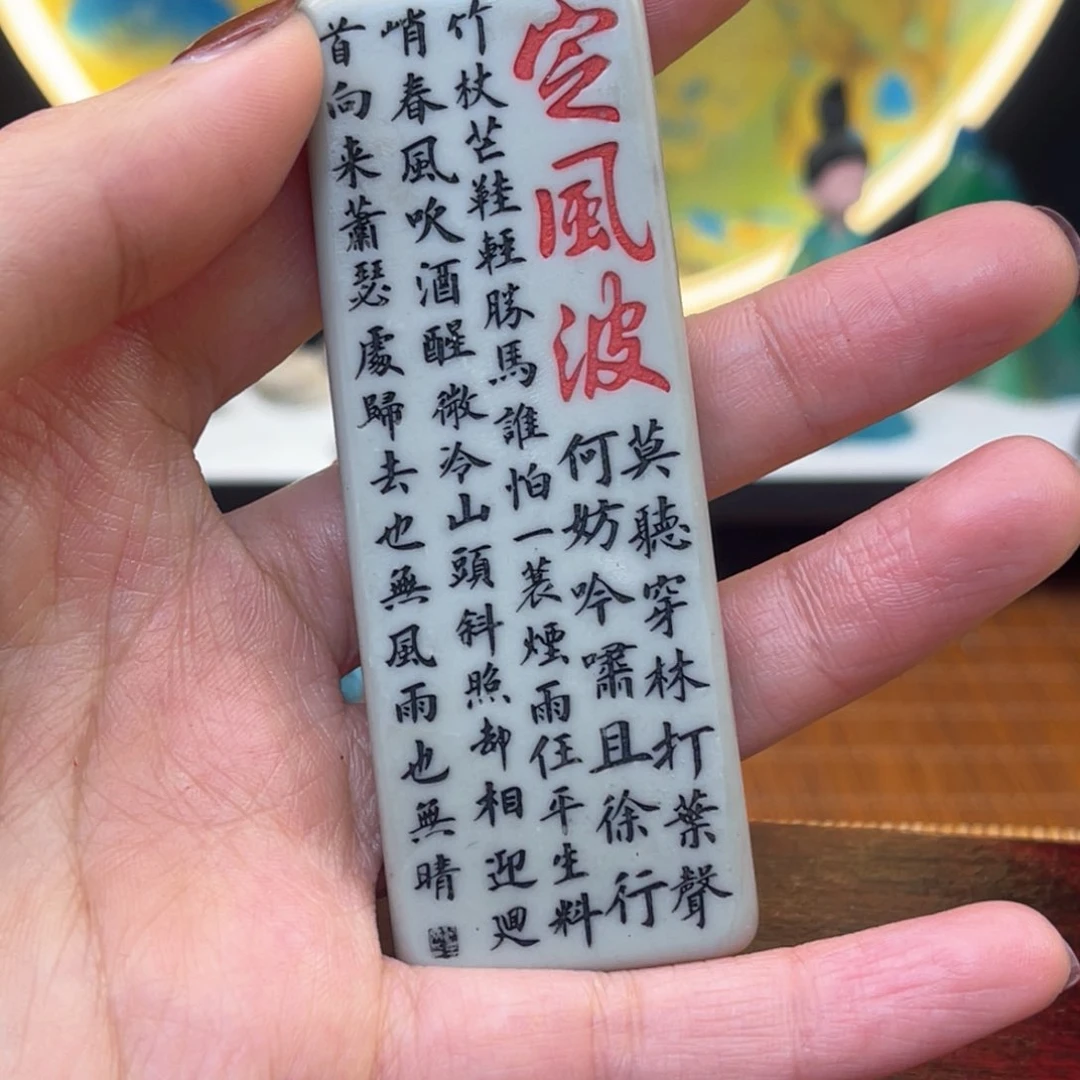 定風波
莫聽穿林打葉聲
何妨吟嘯且徐行
竹杖芒鞋輕勝馬誰怕一蓑煙雨任平生料
峭春風吹酒醒微冷山頭斜照却相迎廻
首向来蕭瑟處歸去也無風雨也無晴